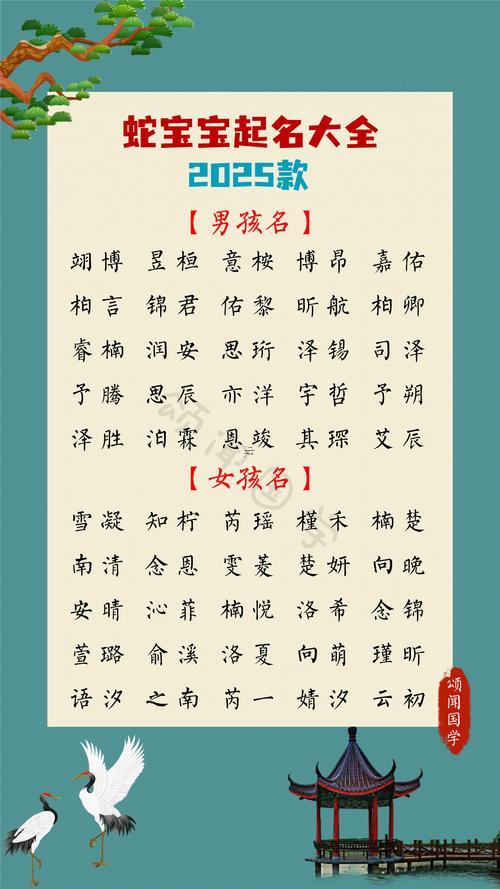 蛇宝宝起名大全
2025款
【男孩名】
翊博 昱桓 意桉 博昂 嘉佑
柏言 锦君 佑黎 昕航 柏卿
睿楠 润安 思珩 泽锡 司泽
予腾 思辰 亦洋 宇哲 予朔
泽胜 洎霖 恩竣 其琛 艾辰
【女孩名】
雪凝 知柠 芮瑶 槿禾 楠楚
南清 念恩 雯菱 楚妍 向晚
安晴 沁菲 楠悦 洛希 念锦
萱璐 俞溪 洛夏 向萌 瑾昕
语汐 之南 芮一 婧汐 云初
颂闻国学
颂闻国学